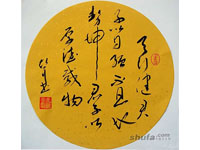 天行健君
子以自强不息地
势坤君子以
厚德载物
shufa.com